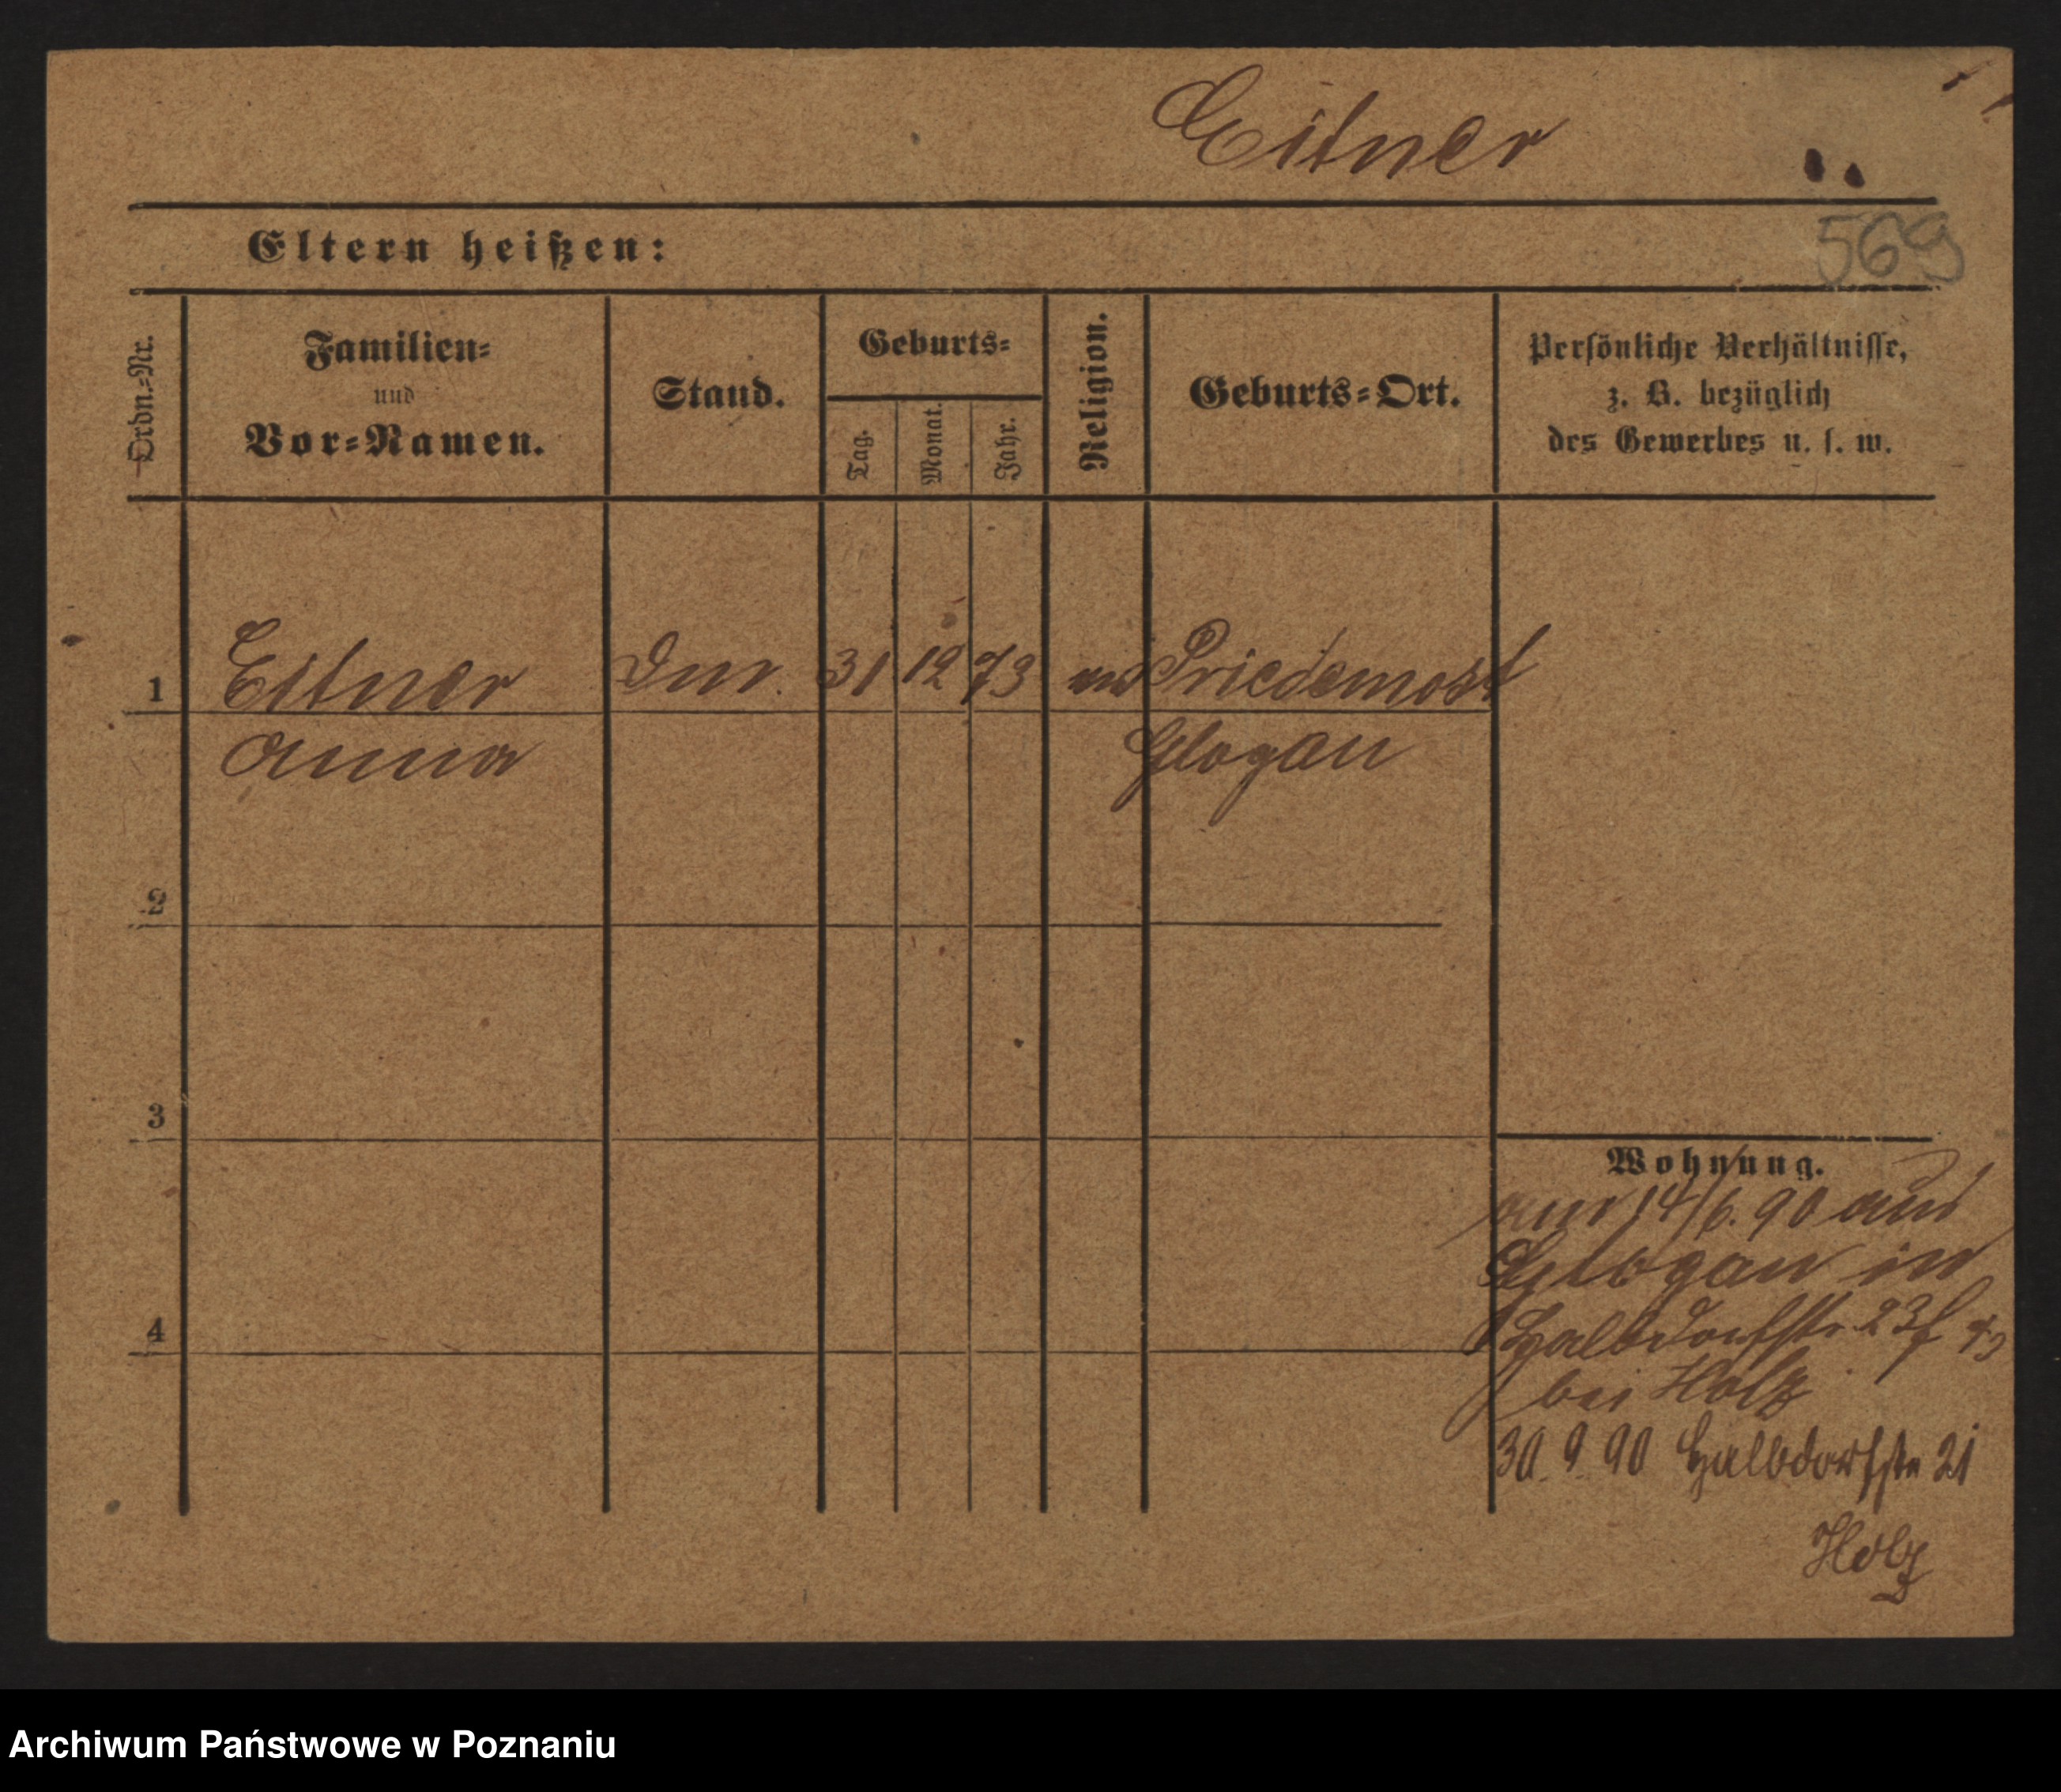 Eitner
569
Eltern heißen:
Ordn.-Nr.
Familien-
und
Vor-Namen.
Stand.
Geburts-
Tag.
Monat.
Jahr.
Religion.
Geburts-Ort.
Persönliche Verhältnisse,
z. B. bezüglich
des Gewerbes u. s. w.
1 Eitner 31 12 73 Priedemost
Anna Glogau
2
3
4
Wohnung.
14/6. 90 aus
Glogau in
Halbdorfstr 23
bei Holz
30. 9. 90 Halbdorfstr 21
Holz
Archiwum Państwowe w Poznaniu